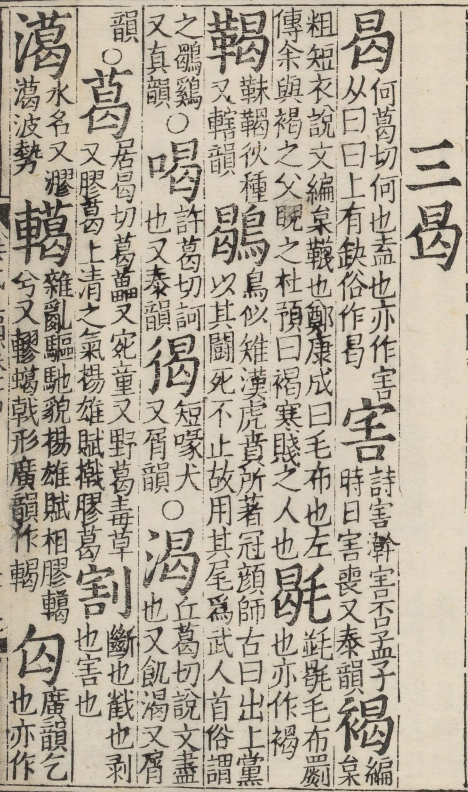 三曷
曷何葛切何也盍也亦作害从曰曰上有缺俗作曷害詩害澣害否孟子時日害喪又泰韻褐編枲
粗短衣說文編枲韈也鄭康成曰毛布也左傳余與褐之父睨之杜預曰褐寒賤之人也毼毼毛布罽也亦作褐
鞨靺鞨狄種又轄韻鶡鳥似雉漢虎賁所著冠顏師古曰出上黨以其鬭死不止故用其尾爲武人首俗謂
之鶡鷄○又真韻喝許葛切訶也又泰韻猲短喙犬又屑韻○渴丘葛切說文盡也又飢渴又屑
韻○葛居曷切葛藟又童又野葛毒草又膠葛上清之氣楊雄賦撠膠葛割斷也截也剥也害也
水名又波勢轕雜亂驅馳貌楊雄賦相膠轕兮又轇戟形廣韻作輵匃廣韻乞也亦作